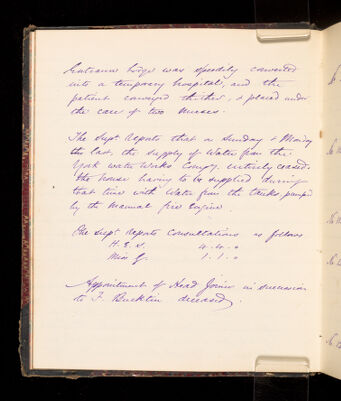 Entrance Lodge was speedily converted
into a temporary hospital, and the
patient conveyed thither, & placed under
the care of two nurses.
The Supt reports that on Sunday & Monday
the last, the supply of Water from the
York Water Works Compy, entirely ceased,
the house having to be supplied during
that time with Water from the tanks pumped
by the manual fire Engine.
The Supt reports Consultations as follows
H. E. S. 4. 4. 0
Miss G. 1. 1. 0
Appointment of Head Joiner in succession
to F. deceased.